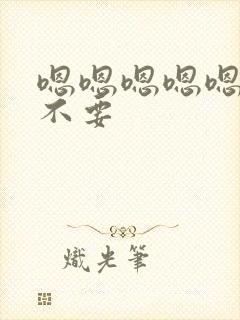 嗯嗯嗯嗯嗯
不要
炽光笔